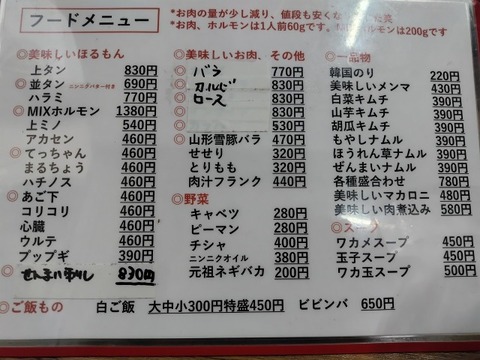 フードメニュー
*お肉の量が少し減り、値段も安くな
*お肉、ホルモンは1人前60gです。 ホルモンは200gです
◎美味しいほるもん
上タン 830円
◎並タン ニンニクバター付き 690円
ハラミ 770円
◎MIXホルモン 1380円
上ミノ 540円
アカセン 460円
◎てっちゃん 460円
まるちょう 460円
ハチノス 460円
◎あご下 460円
コリコリ 460円
心臓 460円
ウルテ 460円
プップギ 390円
◎せんまい刺し 830円
◎美味しいお肉、その他
◎ バラ 770円
◎ カルビ 830円
◎ ロース 830円
◎ 530円
◎山形雪豚バラ 470円
せせり 320円
とりもも 320円
肉汁フランク 440円
◎野菜
キャベツ 280円
ピーマン 280円
チシャ 400円
ニンニクオイル 380円
元祖ネギバカ 200円
◎一品物
韓国のり 220円
美味しいメンマ 430円
白菜キムチ 390円
山芋キムチ 390円
胡瓜キムチ 390円
もやしナムル 390円
ほうれん草ナムル 390円
ぜんまいナムル 390円
各種盛合わせ 780円
美味しいマカロニ 480円
美味しい肉煮込み 580円
◎スープ
ワカメスープ 450円
玉子スープ 450円
ワカ玉スープ 500円
◎ご飯もの 白ご飯 大中小300円特盛450円 ビビンバ 650円